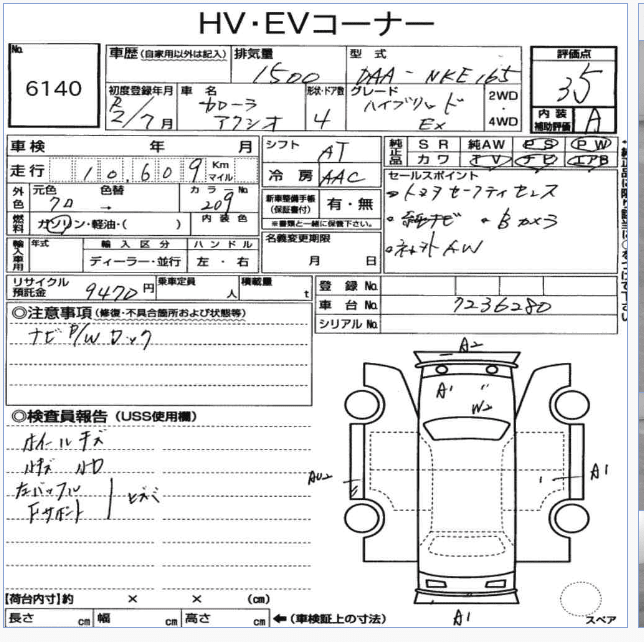 HV・EVコーナー
No. 6140
車歴(自家用以外は記入) 排気量 1500 型式 DAA-NKE165
評価点 3.5
初度登録年月 R2/7月 車名 カローラ アクシオ 形状・ドア数 4 グレード ハイブリッド EX 2WD・4WD
内装補助評価 A
車検 年 月
シフト AT
純正品 SR 純AW PS PW
カワ TV ナビ エアB
走行 10,609 Km マイル
冷房 AAC
セールスポイント
・トヨタセーフティセンス
・純ナビ ・Bカメラ
・社外AW
外色 元色 クロ 色替 → カラーNo. 209
新車整備手帳(保証書付) 有・無
※書類と一緒に保管下さい。
燃料 ガソリン・軽油・( ) 内装色
名義変更期限
月 日
輸入車用 年式 輸入区分 ハンドル
ディーラー・並行 左・右
リサイクル預託金 9470円 乗車定員 人 積載量 t
登録No.
車台No. 7236280
シリアルNo.
◎注意事項(修復・不具合箇所および状態等)
ナビP/Wロック
◎検査員報告(USS使用欄)
ホイールキズ
左マッフル
Fサポート
A2
A1
W2
AU2
A1
A1
【荷台内寸】約 × × (cm)
長さ cm 幅 cm 高さ cm ←(車検証上の寸法)
スペア